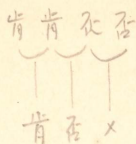 肯肯否否
肯否×